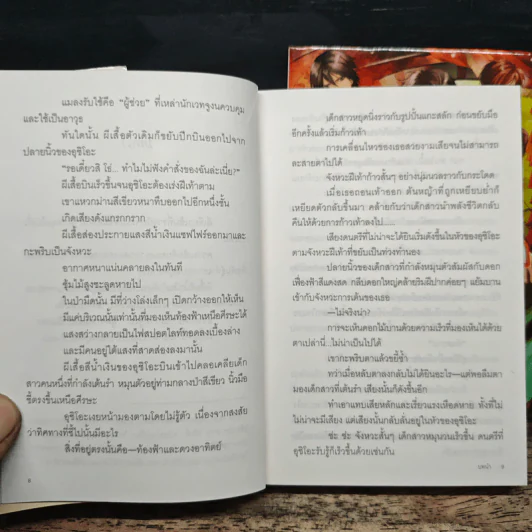 แมลงรับใช้คือ “ผู้ช่วย” ที่เหล่านักเวทจูงนควบคุม
และใช้เป็นอาวุธ
ทันใดนั้น ผีเสื้อตัวเดิมก็ขยับปีกบินออกไปจาก
ปลายนิ้วของอุชิโอะ
“รอเดี๋ยวสิ โธ่... ทำไมไม่ฟังคำสั่งของฉันล่ะเนี่ย?”
ผีเสื้อบินเร็วขึ้นจนอุชิโอะต้องเร่งฝีเท้าตาม
เขาแหวกม่านสีเขียวหนาทึบออกไปอีกหนึ่งชั้น
เกิดเสียงดังแกรกกราก
ผีเสื้อส่องประกายแสงสีน้ำเงินแซฟไฟร์ออกมาและ
กะพริบเป็นจังหวะ
อากาศหนาแน่นคลายลงในทันที
ซุ้มไม้สูงชะลูดหายไป
ในป่ามืดนั้น มีที่ว่างโล่งเล็กๆ เปิดกว้างออกให้เห็น
มีแค่บริเวณนั้นเท่านั้นที่มองเห็นท้องฟ้าเหนือศีรษะได้
แสงสว่างกลายเป็นไฟสปอตไลท์ทอดลงเบื้องล่าง
และมีคนอยู่ใต้แสงที่สาดส่องลงมานั้น
ผีเสื้อสีน้ำเงินของอุชิโอะบินเข้าไปคลอเคลียเด็ก
สาวคนหนึ่งที่กำลังเต้นรำ หมุนตัวอยู่ท่ามกลางป่าสีเขียว นิ้วมือ
ชี้ตรงขึ้นเหนือศีรษะ
อุชิโอะเงยหน้ามองตามโดยไม่รู้ตัว เนื่องจากสงสัย
ว่าทิศทางที่ชี้ไปนั้นมีอะไร
สิ่งที่อยู่ตรงนั้นคือ—ท้องฟ้าและดวงอาทิตย์
8
เด็กสาวหยุดนิ่งราวกับรูปปั้นแกะสลัก ก่อนขยับมือ
อีกครั้งแล้วเริ่มก้าวเท้า
การเคลื่อนไหวของเธอสวยงามเสียจนไม่สามารถ
ละสายตาไปได้
จังหวะฝีเท้าก้าวสั้นๆ อย่างนุ่มนวลราวกับกระโดด
เมื่อเธอถอนเท้าออก ต้นหญ้าที่ถูกเหยียบย่ำก็
เหยียดตัวกลับขึ้นมา คล้ายกับว่าเด็กสาวนำพลังชีวิตกลับ
คืนให้ด้วยการก้าวเท้าลงไป
เสียงดนตรีที่ไม่น่าจะได้ยินเริ่มดังขึ้นในหัวของอุชิโอะ
ตามจังหวะฝีเท้าที่ขยับเป็นท่วงทำนอง
ปลายนิ้วของเด็กสาวที่กำลังหมุนตัวสัมผัสกับดอก
เฟื่องฟ้าสีแดงสด กลีบดอกใหญ่คล้ายริมฝีปากค่อยๆ แย้มบาน
เข้ากับจังหวะการเต้นของเธอ
—ไม่จริงน่า?
การจะเห็นดอกไม้บานด้วยความเร็วที่มองเห็นได้ด้วย
ตาเปล่านี่...ไม่น่าเป็นไปได้
เขากะพริบตาแล้วขยี้ซ้ำ
ทว่าเมื่อหลับตาลงกลับไม่ได้ยินอะไร—แต่พอลืมตา
มองเด็กสาวที่เต้นรำ เสียงนั้นก็ดังขึ้นอีก
ทำเอาแทบเสียหลักและเรี่ยวแรงเหือดหาย ทั้งที่ไม่
ไม่น่าจะมีเสียง แต่เสียงนั้นกลับลั่นอยู่ในหัวของอุชิโอะ
ซ่ะ ซ่ะ จังหวะสั้นๆ เด็กสาวหมุนวนเร็วขึ้น ดนตรีที่
อุชิโอะรับรู้ก็เร็วขึ้นด้วยเช่นกัน
บทนำ 9